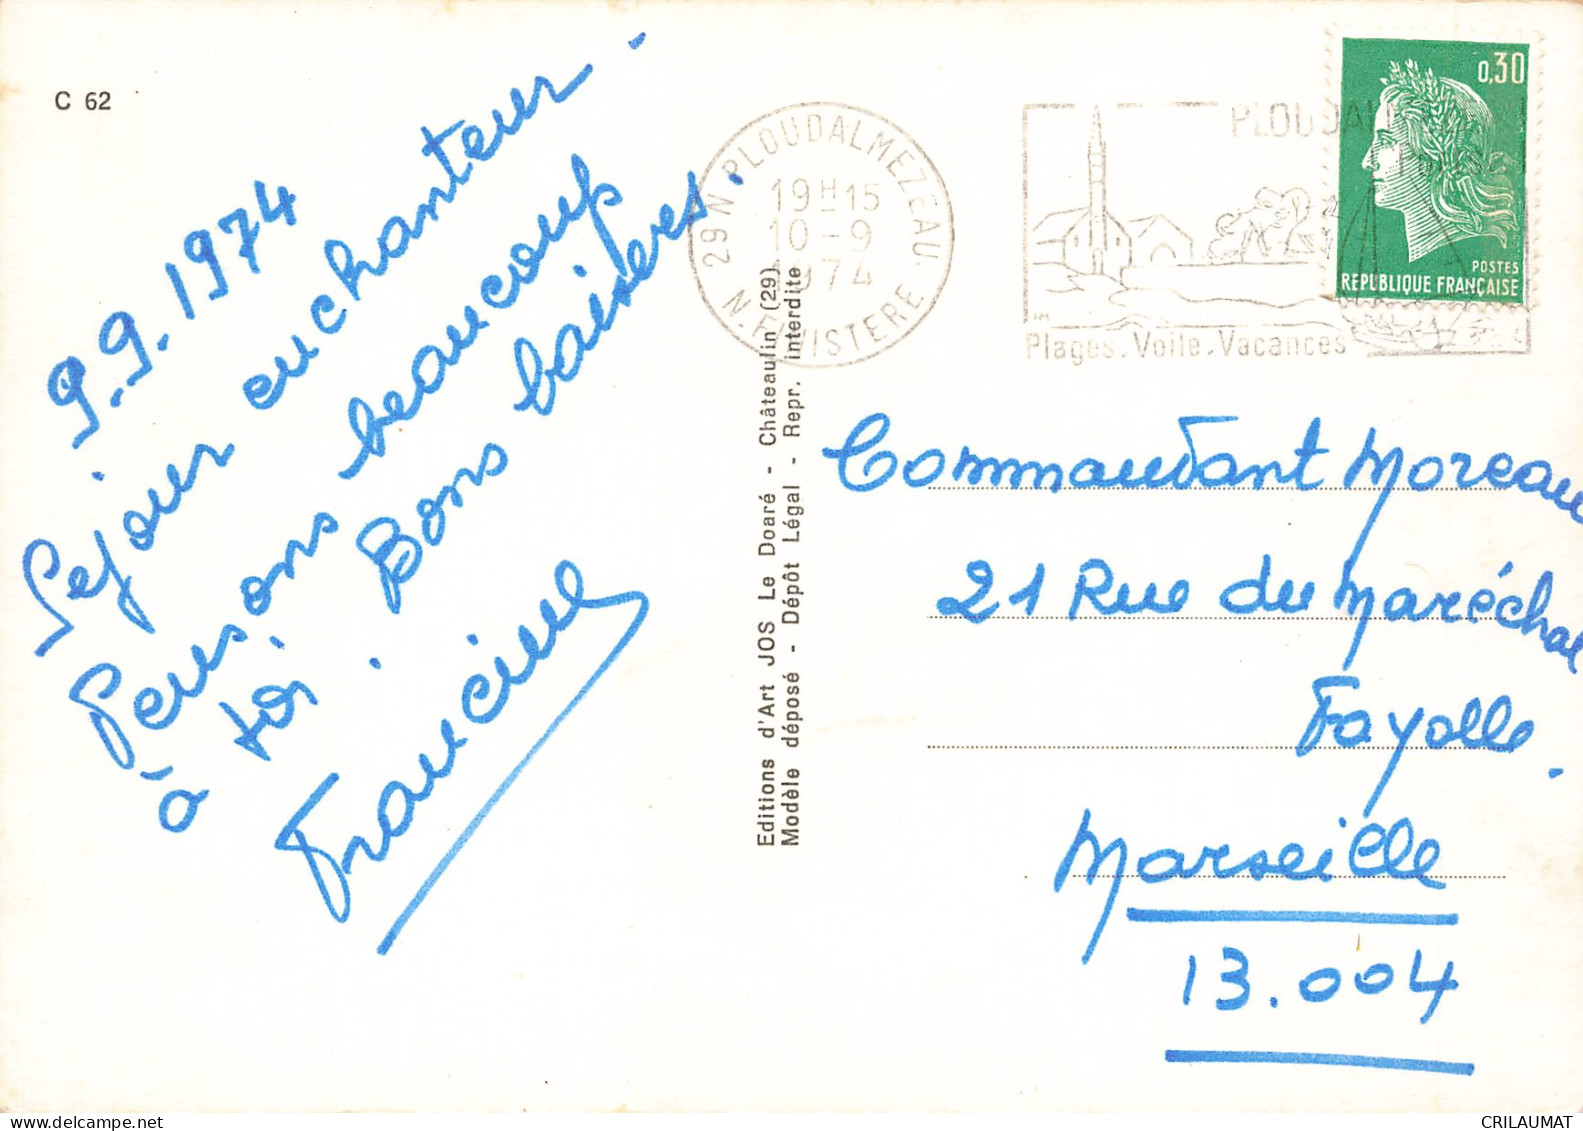 C 62
9.9.1974
Séjour enchanteur -
Pensons beaucoup
à toi. Bons baisers.
Francine
Editions d'Art JOS Le Doaré - Châteaulin (29)
Modèle déposé - Dépôt Légal - Repr. interdite
29 N PLOUDALMEZEAU
19H15
10-9
1974
N. FINISTERE
Plages. Voile. Vacances
0,30
POSTES
REPUBLIQUE FRANÇAISE
Commandant Moreau
21 Rue du Maréchal
Fayolle.
Marseille
13.004
CRILAUMAT